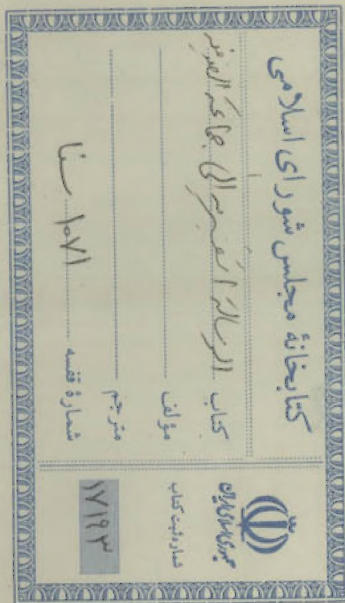 کتابخانهٔ مجلس شورای اسلامی
کتاب الرسالة القشیریة الی جماعة الصوفیة
مؤلف
مترجم
شمارهٔ قفسه ۱۰۷۱ سنا
جمهوری اسلامی ایران
شماره ثبت کتاب
۱۷۱۹۳